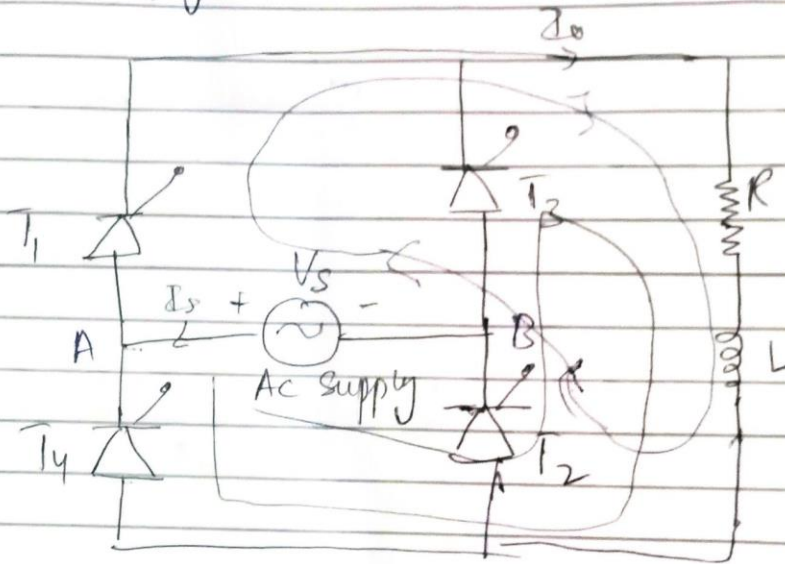 Io
T1
T3
R
Vs
Is + -
A
B
L
Ac Supply
T4
T2